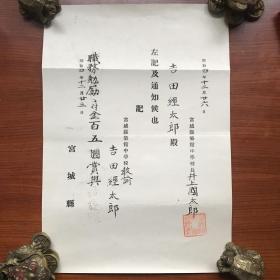 昭和四年十二月廿六日
宮城縣築館中學校長井上國太郎
吉田經太郎殿
左記及通知候也
記
宮城縣築館中學校教諭
吉田經太郎
職務勉勵ニ付金百五圓賞與
昭和四年十二月廿五日
宮城縣